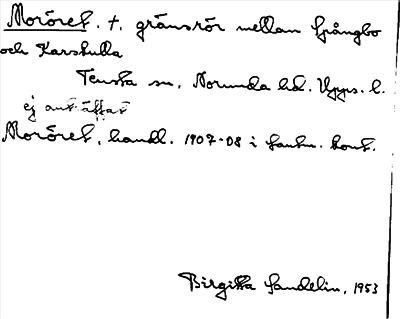 Moröret. †. gränsrör mellan Grångbo
och Karskulla
Tensta sn. Norunda hd. Upps. l.
ej anträffat
Moröret, handl. 1907-08 i Lantm. kont.
Birgitta Sandelin, 1953